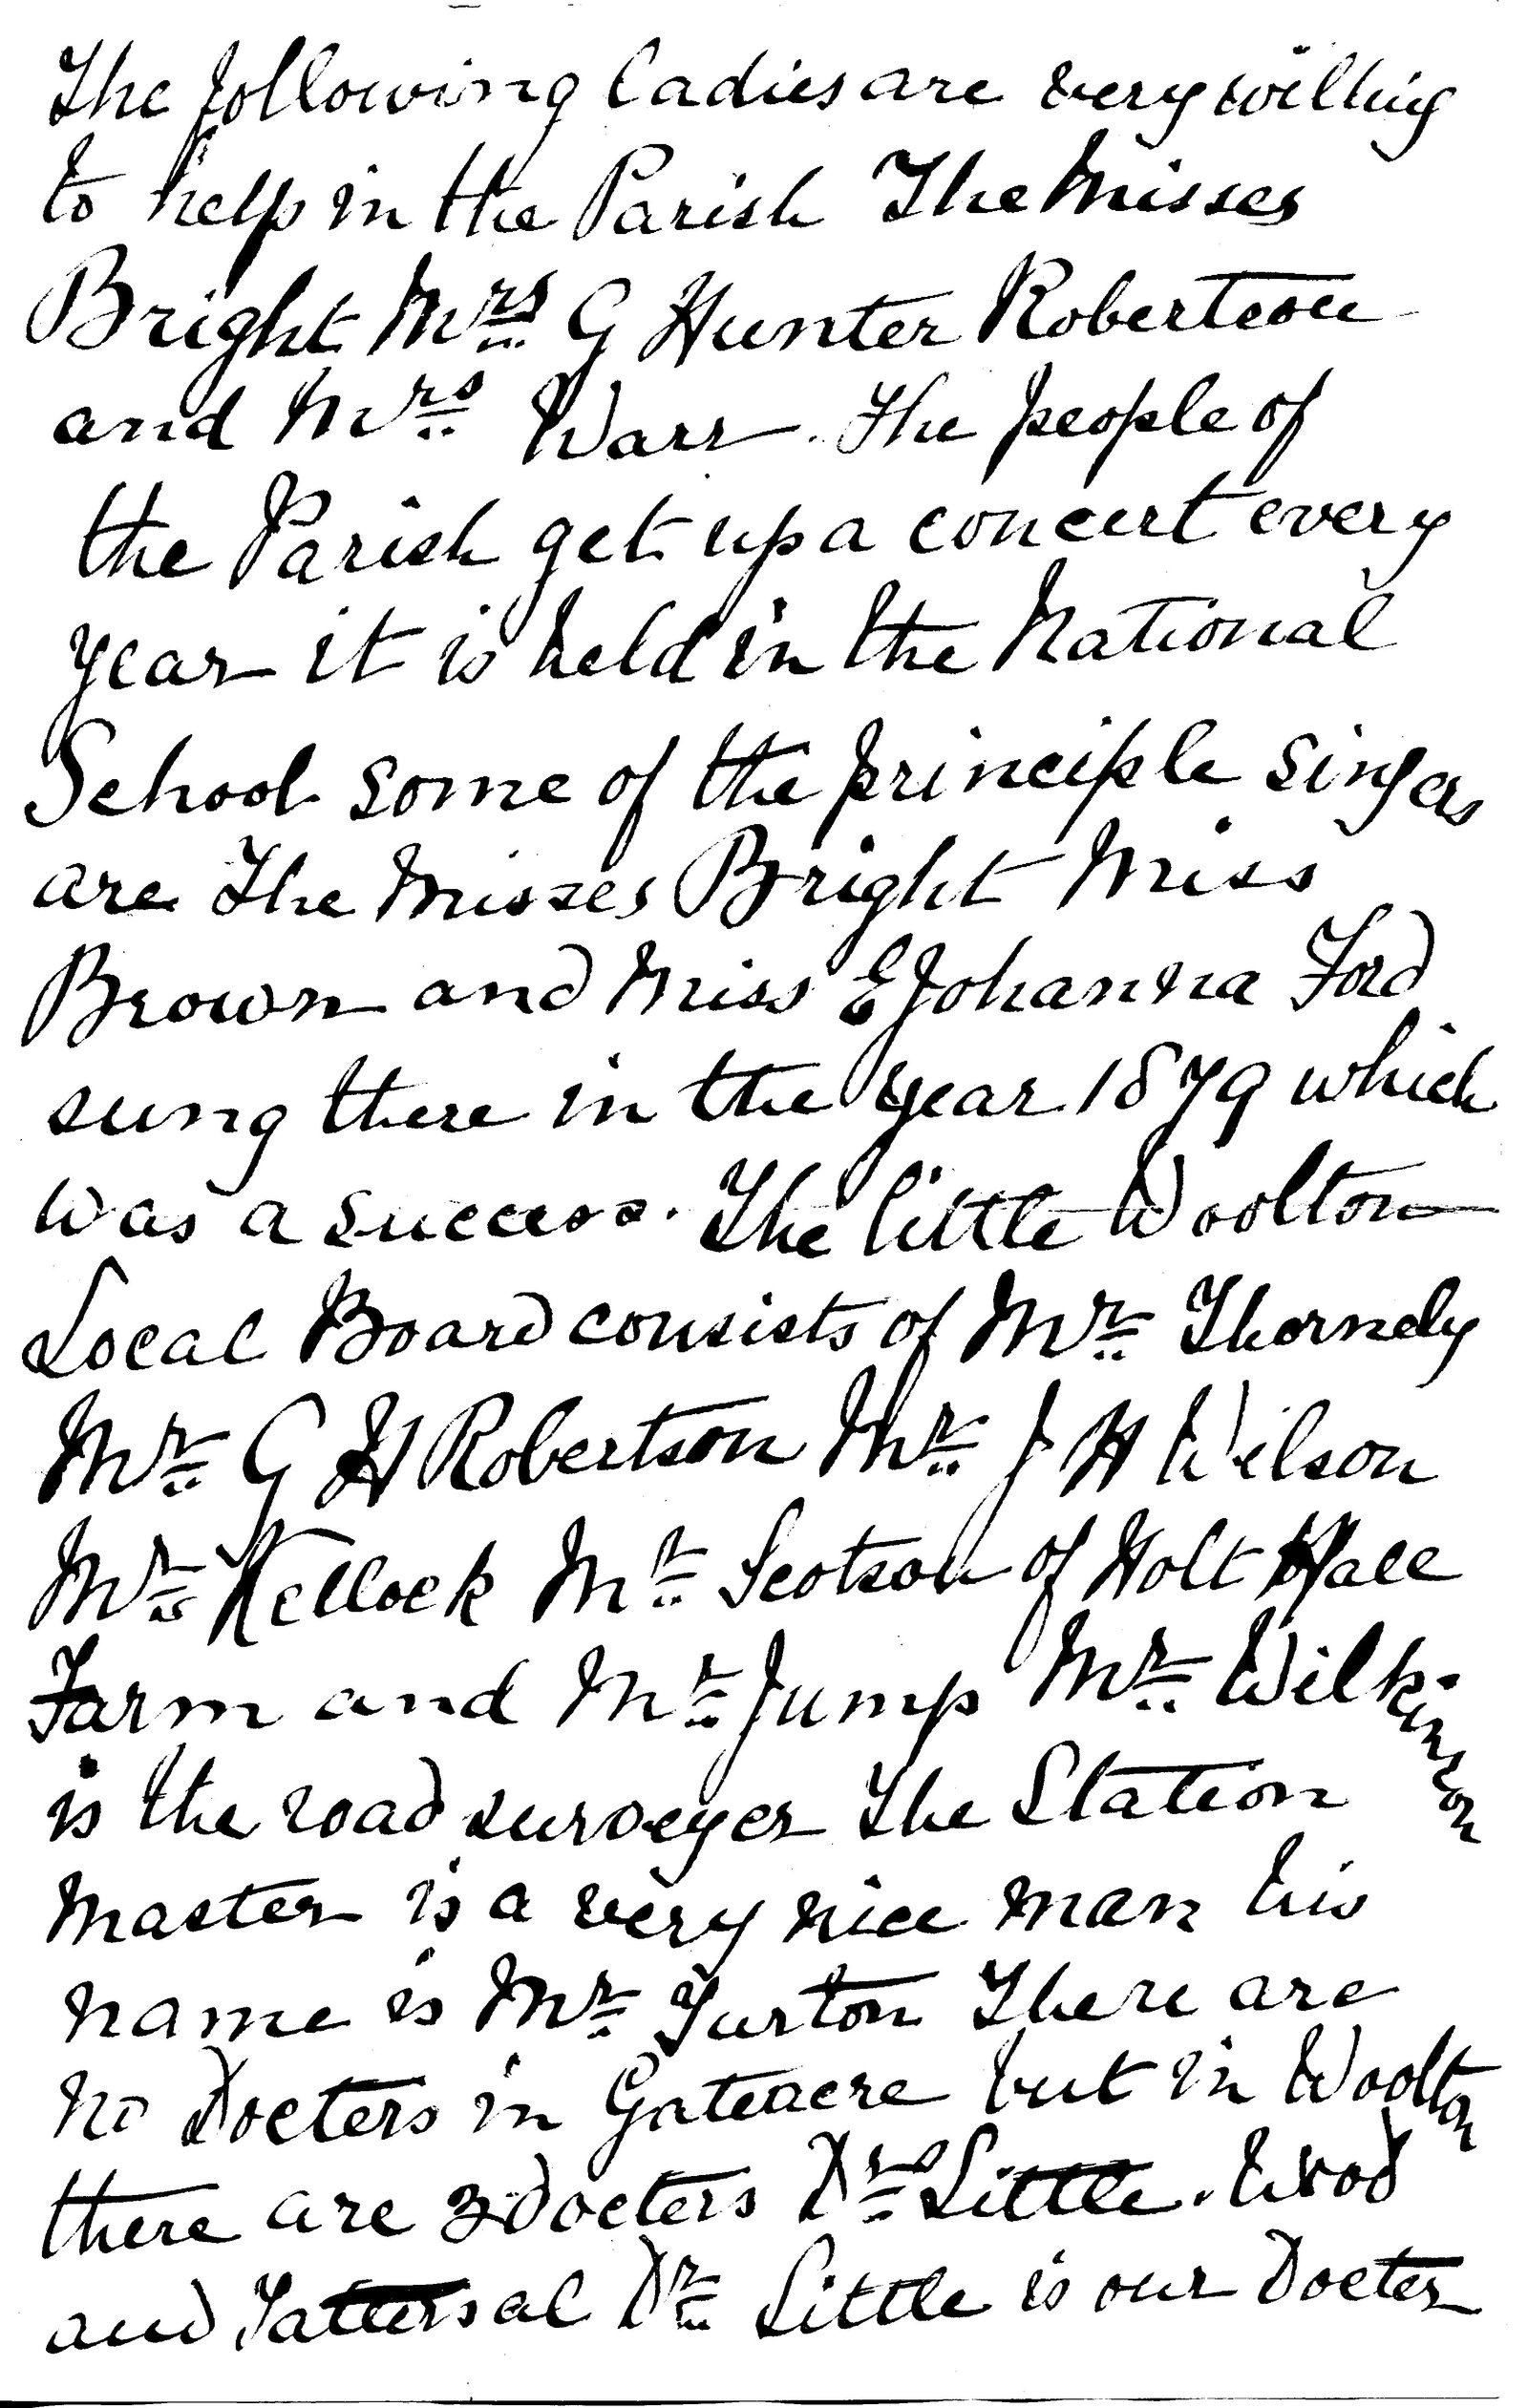 The following Ladies are very willing
to help in the Parish The Misses
Bright Mrs G Hunter Robertson
and Mrs Warr. The people of
the Parish get up a concert every
year it is held in the National
School some of the principle singers
are The Misses Bright Miss
Brown and Miss E Johanna Ford
sung there in the year 1879 which
was a success. The little Woolton
Local Board consists of Mr Thornely
Mr G H Robertson Mr J H Wilson
Mr Kellock Mr Scotson of Holt Hall
Farm and Mr Jump Mr Wilkinson
is the road surveyer The Station
Master is a very nice man his
name is Mr Turton There are
no Docters in Gateacre but in Woolton
there are 3 Docters Drs Little. Wood
and Tattersal Dr Little is our Docter